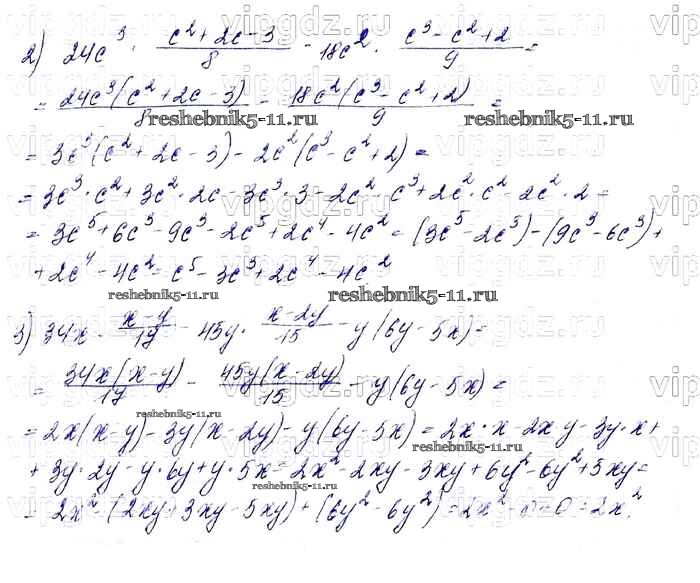 2) 24c³ · (c² + 2c - 3)/8 - 18c² · (c³ - c² + 2)/9 =
= 24c³(c² + 2c - 3)/8 - 18c²(c³ - c² + 2)/9 =
reshebnik5-11.ru reshebnik5-11.ru
= 3c³(c² + 2c - 3) - 2c²(c³ - c² + 2) =
= 3c³ · c² + 3c² · 2c - 3c³ · 3 - 2c² · c³ + 2c² · c² - 2c² · 2 =
= 3c⁵ + 6c³ - 9c³ - 2c⁵ + 2c⁴ - 4c² = (3c⁵ - 2c⁵) - (9c³ - 6c³) +
+ 2c⁴ - 4c² = c⁵ - 3c³ + 2c⁴ - 4c²
reshebnik5-11.ru reshebnik5-11.ru
3) 34x · (x - y)/17 - 45y · (x - 2y)/15 - y(6y - 5x) =
= 34x(x - y)/17 - 45y(x - 2y)/15 - y(6y - 5x) =
reshebnik5-11.ru
= 2x(x - y) - 3y(x - 2y) - y(6y - 5x) = 2x · x - 2xy - 3y · x +
reshebnik5-11.ru
+ 3y · 2y - y · 6y + y · 5x = 2x² - 2xy - 3xy + 6y² - 6y² + 5xy =
reshebnik5-11.ru
= 2x² - (2xy + 3xy - 5xy) + (6y² - 6y²) = 2x² - 0 + 0 = 2x².
vipgdz.ru